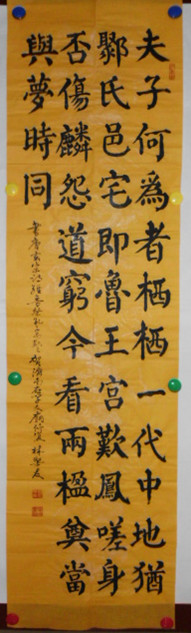 夫子何為者栖栖一代中地猶
鄹氏邑宅即魯王宮歎鳳嗟身
否傷麟怨道窮今看兩楹奠當
與夢時同